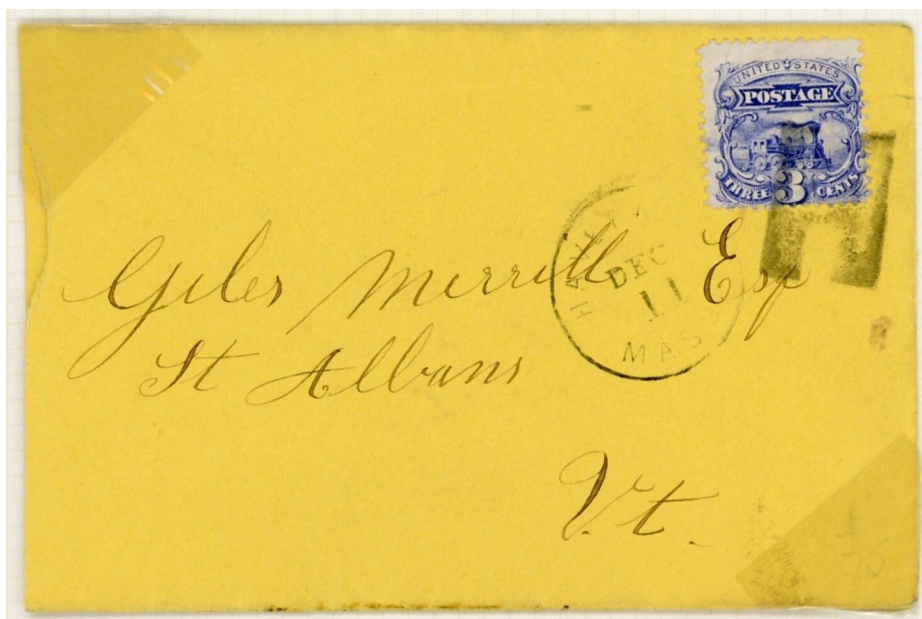 UNITED STATES
POSTAGE
THREE 3 CENTS
DEC
11
MASS
H
Giles Merrill Esq
St Albans
Vt.